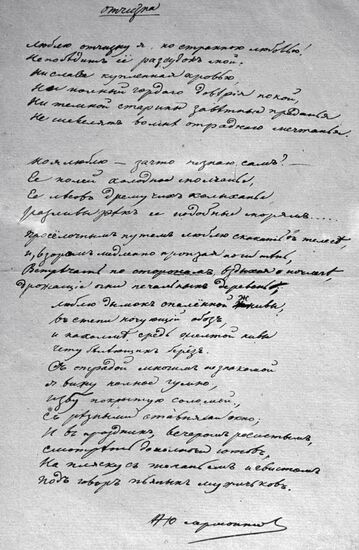 Отчизна
Люблю отчизну я, но странною любовью!
Не побѣдитъ ее разсудокъ мой.
Ни слава купленная кровью,
Ни полный гордаго довѣрiя покой,
Ни темной старины завѣтныя преданья
Не шевелятъ во мнѣ отраднаго мечтанья.
Но я люблю — за что не знаю самъ? —
Ее полей холодное молчанье,
Ее лѣсовъ дремучихъ колыханье,
Разливы рѣкъ ее подобные морямъ.....
Проселочнымъ путемъ люблю скакать въ телегѣ,
И, взоромъ медленно пронзая ночи тѣнь,
Встрѣчать по сторонамъ, вздыхая о ночлегѣ,
Дрожащiе огни печальныхъ деревень;
Люблю дымокъ спаленной жнивы,
Въ степи кочующiй обозъ,
И на холмѣ средь желтой нивы
Чету бѣлѣющихъ березъ.
Съ отрадой многимъ незнакомой
Я вижу полное гумно,
Избу покрытую соломой,
Съ рѣзными ставнями окно;
И въ праздникъ, вечеромъ росистымъ,
Смотрѣть до полночи готовъ,
На пляску съ топаньемъ и свистомъ
Подъ говоръ пьяныхъ мужичковъ.
М Ю Лермонтов